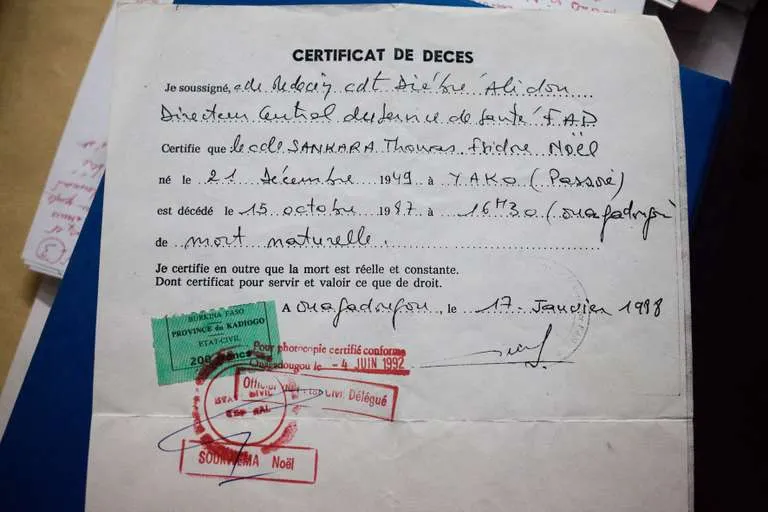 CERTIFICAT DE DECES
Je soussigné, cdt Alidou
Directeur Central du Service de Santé FAD
Certifie que le cdt SANKARA Thomas Isidore Noël
né le 21 décembre 1949 à YAKO (Passoré)
est décédé le 15 octobre 1987 à 16H30 (Ouagadougou)
de mort naturelle.
Je certifie en outre que la mort est réelle et constante.
Dont certificat pour servir et valoir ce que de droit.
A Ouagadougou, le 17 Janvier 1988
BURKINA FASO
PROVINCE du KADIOGO
ETAT-CIVIL
200 francs
Pour photocopie certifié conforme
Ouagadougou le - 4 JUIN 1992
Délégué
Noël